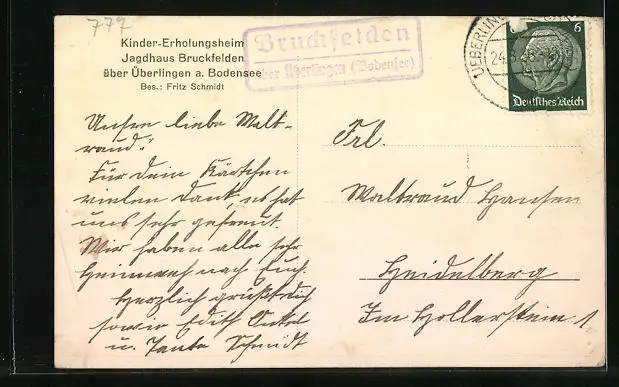 777
Kinder-Erholungsheim
Jagdhaus Bruckfelden
über Überlingen a. Bodensee
Bes.: Fritz Schmidt
Bruckfelden
über Überlingen (Bodensee)
UEBERLINGEN
24.
6 6
Deutsches Reich
Unsre liebe Walt-
raud!
Für dein Kärtchen
vielen Dank, es hat
uns sehr gefreut.
Wir haben alle sehr
Heimweh nach Euch.
Herzlich grüßt dich
sowie Edith Onkel
u. Tante Schmidt
Frl.
Waltraud Hansen
Heidelberg
Im Hollerstein 1